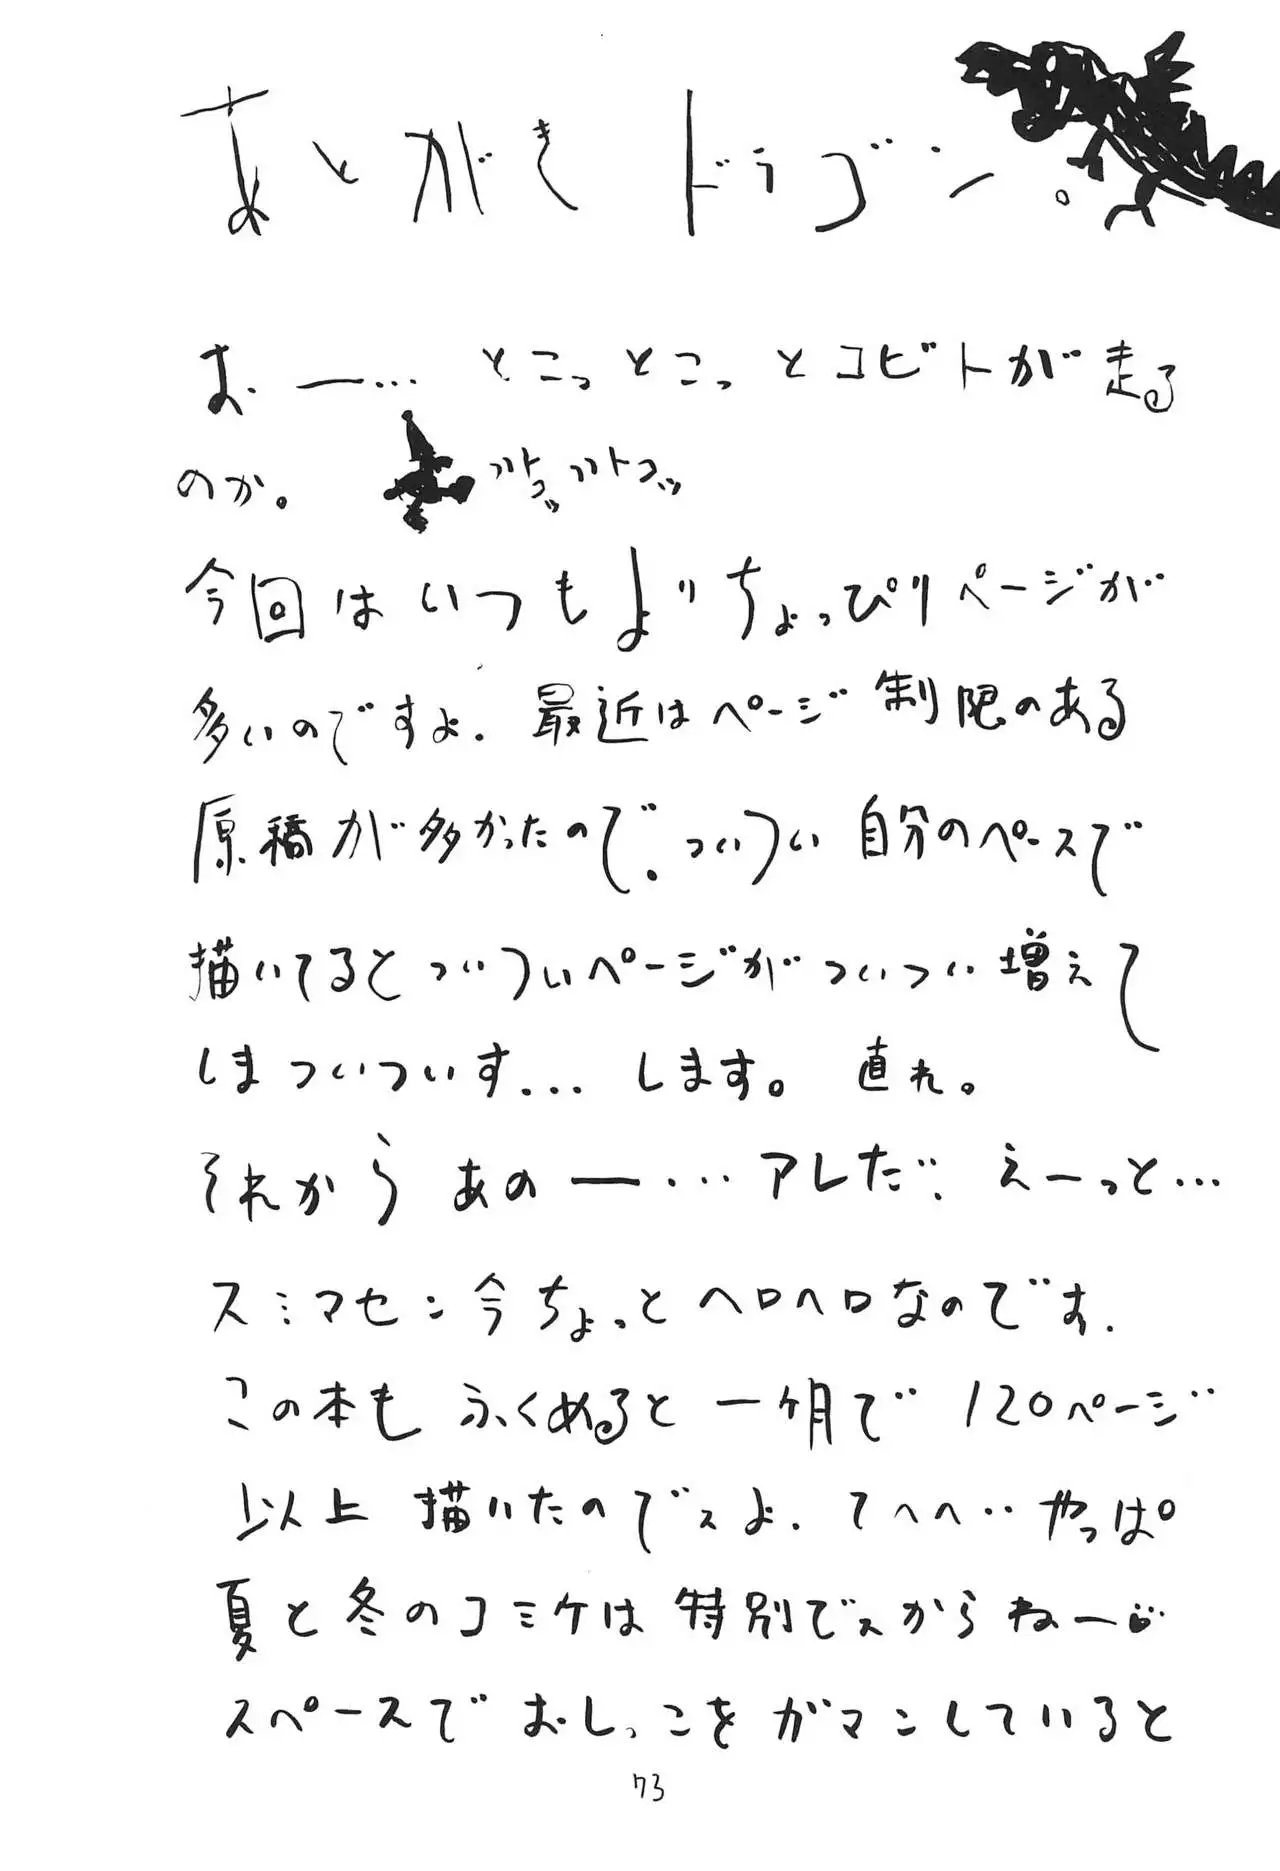 あとがきドラゴン。
お、ー… とこっとこっとコビトが走る
のか。
今回はいつもよりちょっぴりページが
多いのですよ. 最近はページ制限のある
原稿が多かったので、ついつい自分のペースで
描いてるとついついページがついつい増えて
しまついついす... します。 直れ。
それからあのー・… アレだ‥. えーっと…
スミマセン今ちょっとヘロヘロなのです.
この本もふくめると一ヶ月で120ページ
以上描いたのでスよ. てへへ‥やっぱ
夏と冬のコミケは特別でスからねー
スペースでおしっこをガマンしていると
73